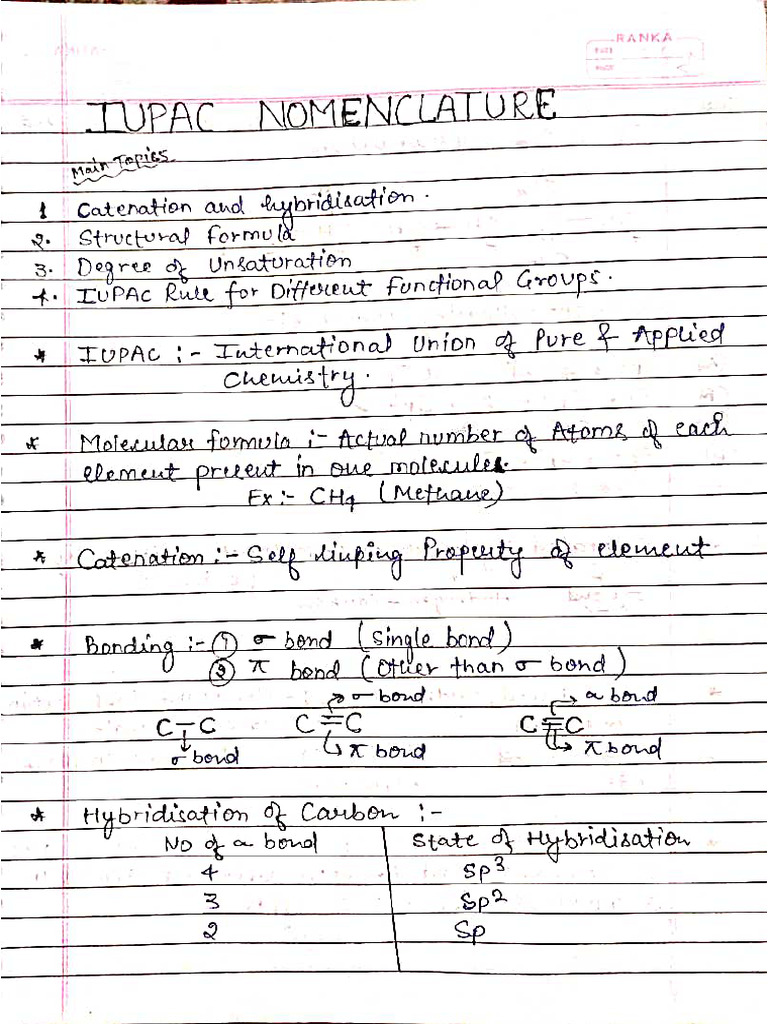 RANKA
IUPAC NOMENCLATURE
Main Topics
1 Catenation and hybridisation.
2. Structural formula
3. Degree of Unsaturation
4. IUPAC Rule for Different Functional Groups.
* IUPAC :- International Union of Pure & Applied
Chemistry.
* Molecular formula :- Actual number of Atoms of each
element present in one molecules.
Ex :- CH4 (Methane)
* Catenation :- Self linking Property of element
* Bonding :- ① σ bond (Single bond)
② π bond (Other than σ bond)
σ bond σ bond
C-C C=C C≡C
σ bond π bond π bond
* Hybridisation of Carbon :-
No of σ bond State of Hybridisation
4 Sp3
3 Sp2
2 Sp